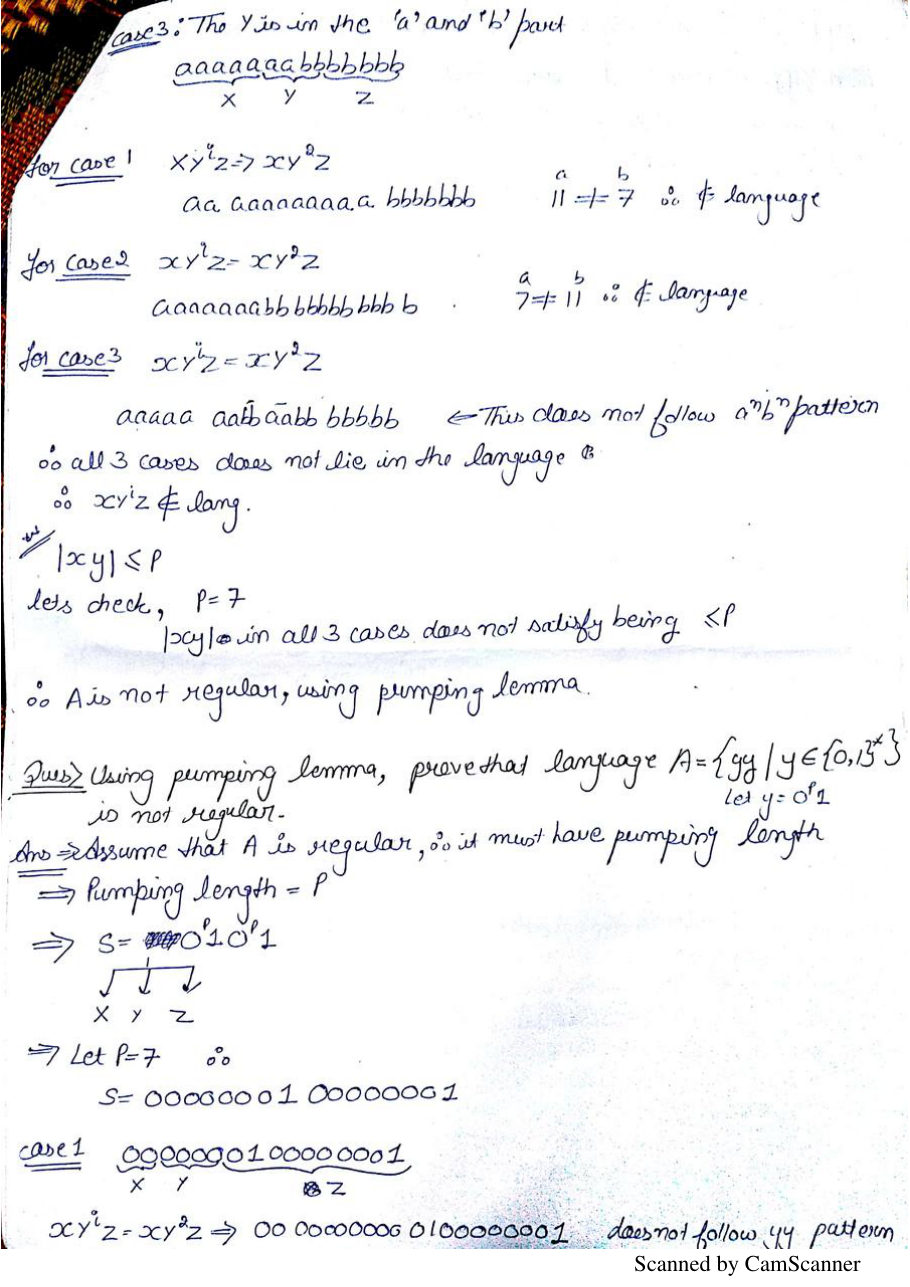 case 3: The Y is in the 'a' and 'b' part
aaaaaaabbbbbbb
X Y Z
for case 1 xyⁱz ⇒ xy²z
aa aaaaaaaaa bbbbbbb a 11 ≠ b 7 ∴ ∉ language
for case2 xyⁱz = xy²z
aaaaaaabb bbbbbb bbb b . a 7 ≠ b 11 ∴ ∉ language
for case 3 xyⁱz = xy²z
aaaaa aabb aabb bbbbb ← This does not follow aⁿbⁿ pattern
∴ all 3 cases does not lie in the language
∴ xyⁱz ∉ lang.
|xy| ≤ P
lets check, P = 7
|xy| in all 3 cases does not satisfy being ≤ P
∴ A is not regular, using pumping lemma.
Ques> Using pumping lemma, prove that language A = {yy | y ∈ {0,1}*}
is not regular. Let y = 0ᴾ1
Ans ⇒ Assume that A is regular, ∴ it must have pumping length
⇒ Pumping length = P
⇒ S = 0ᴾ1 0ᴾ1
X Y Z
⇒ Let P = 7 ∴
S = 00000001 00000001
case 1 0000000100000001
X Y Z
xyⁱz = xy²z ⇒ 00 00000000 0100000001 does not follow yy pattern
Scanned by CamScanner